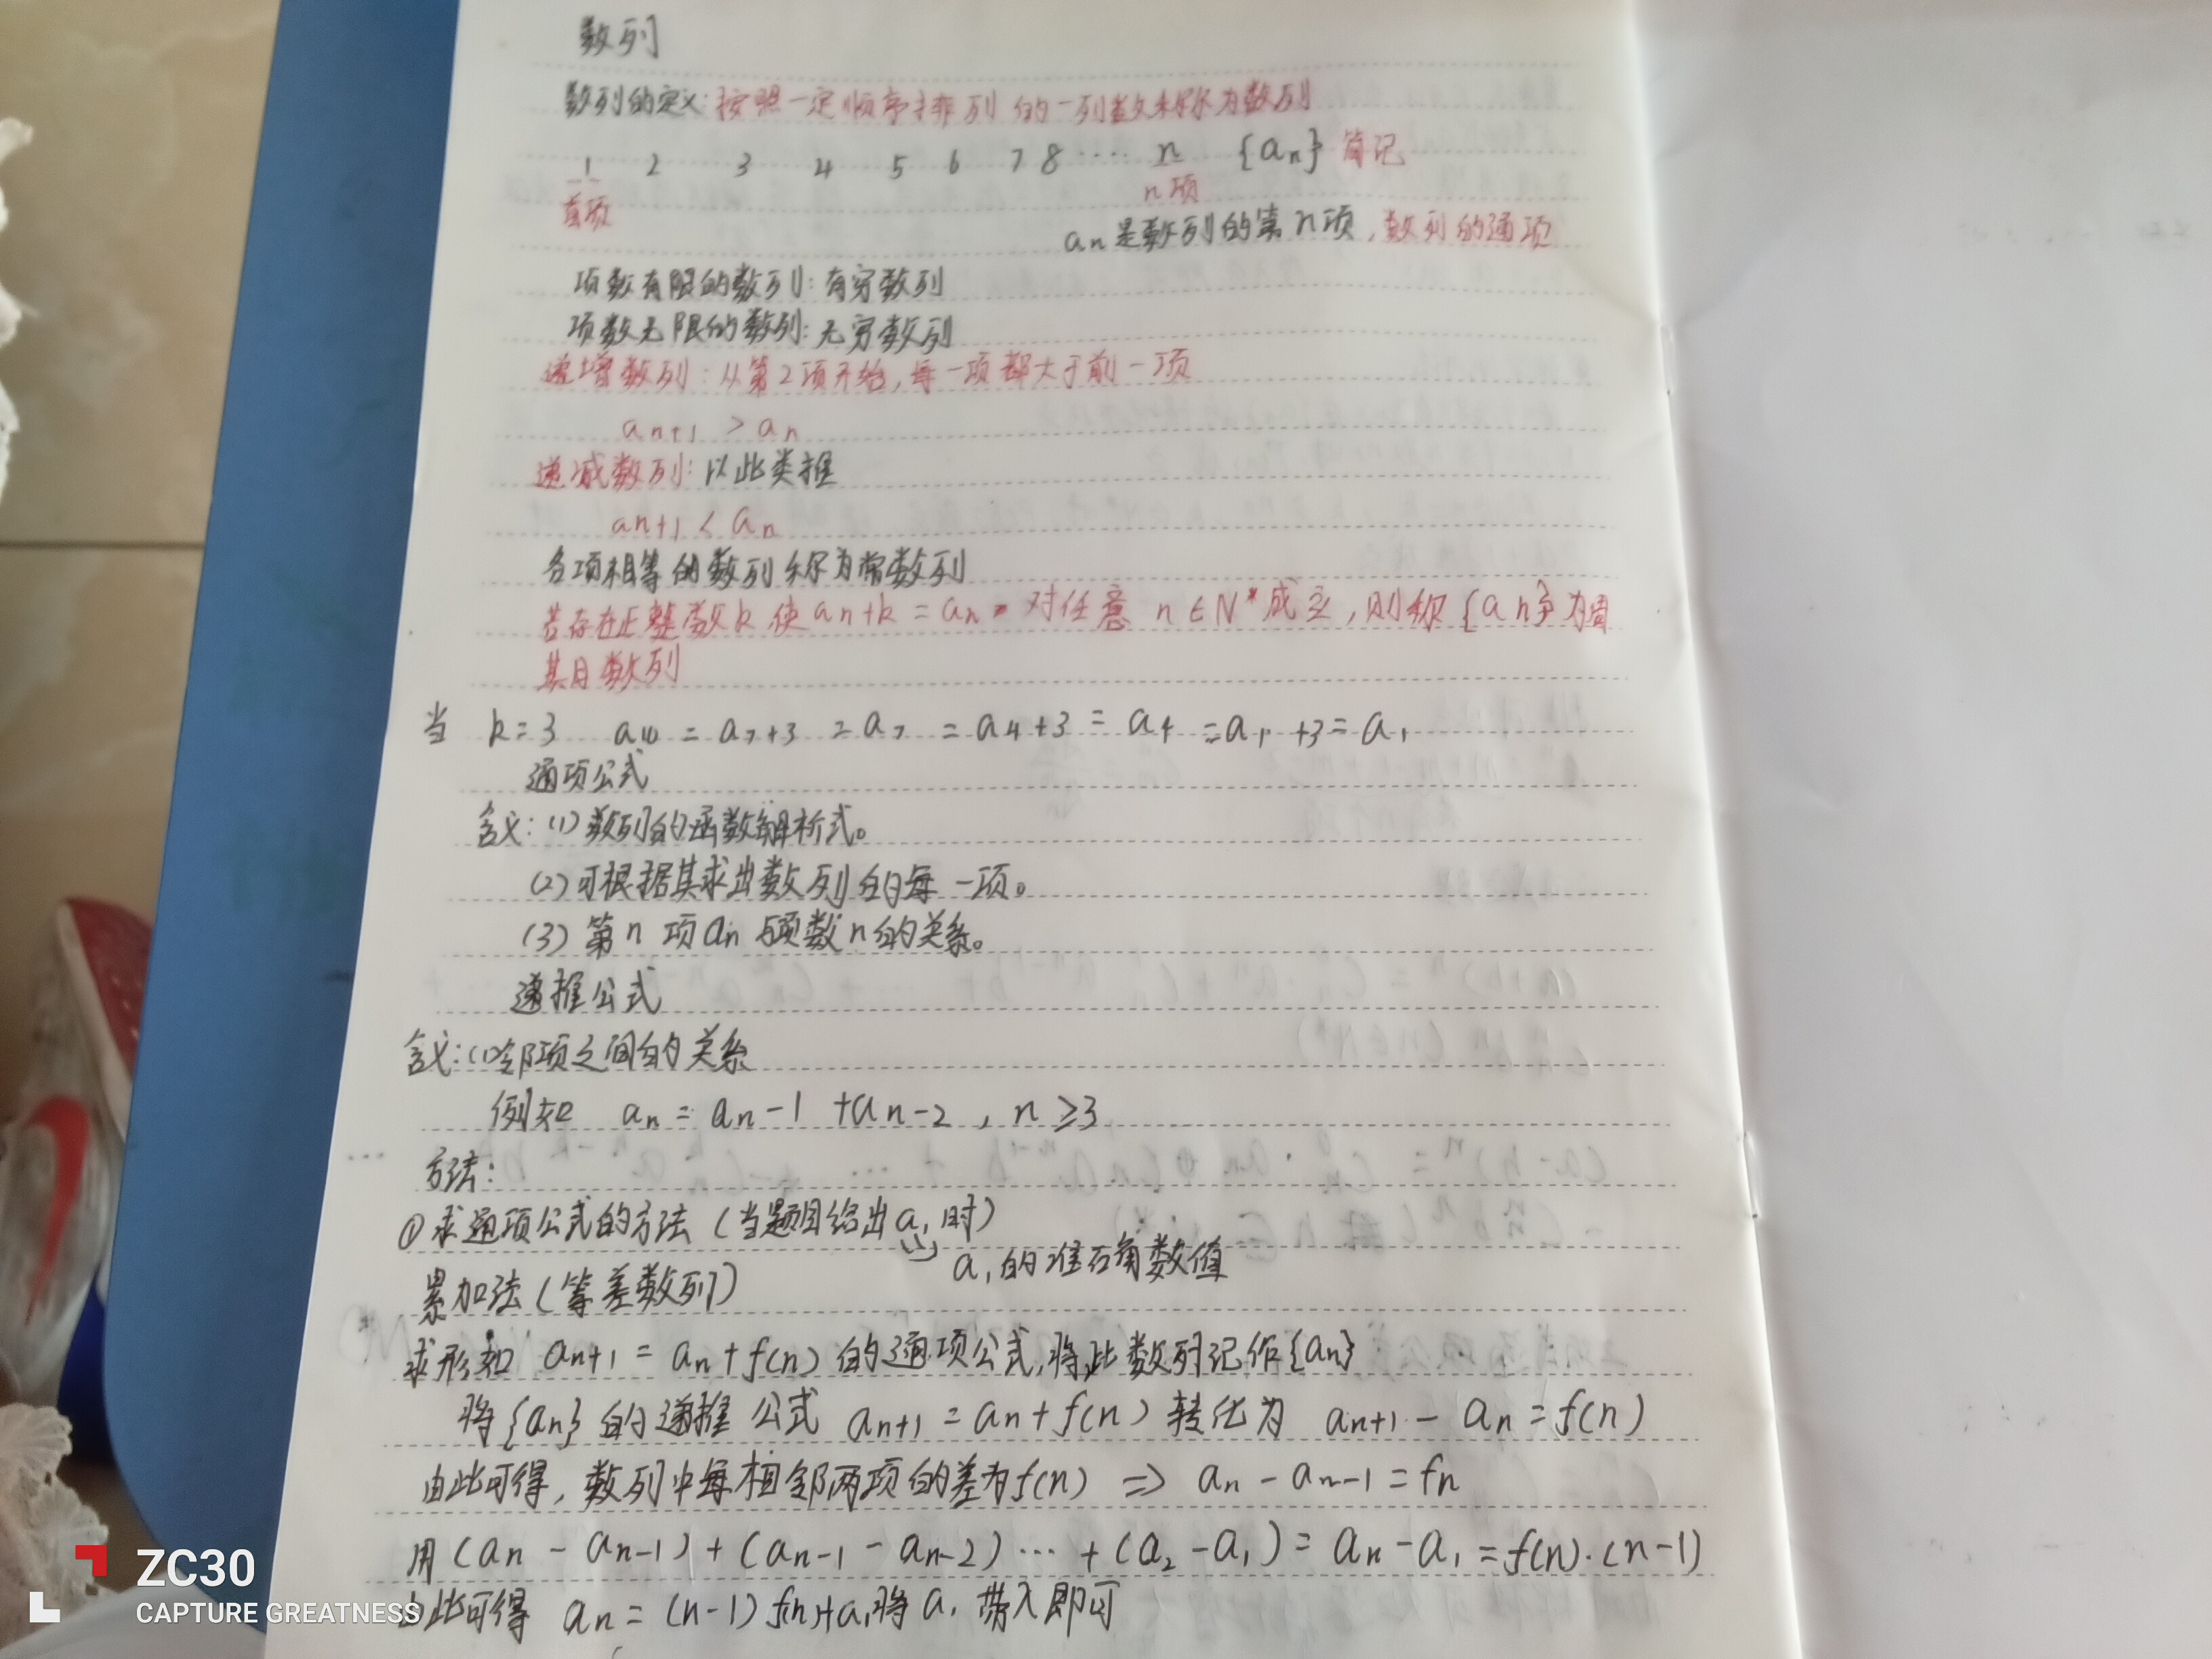 数列
数列的定义:按照一定顺序排列的一列数称为数列
1 2 3 4 5 6 7 8 ···· n {an} 简记
首项 n项
an是数列的第n项,数列的通项
项数有限的数列:有穷数列
项数无限的数列:无穷数列
递增数列:从第2项开始,每一项都大于前一项
an+1 > an
递减数列:以此类推
an+1 < an
各项相等的数列称为常数列
若存在正整数k使an+k = an 对任意 n∈N*成立,则称{an}为周
期数列
当 k=3 a10 = a7+3 = a7 = a4+3 = a4 = a1+3 = a1
通项公式
含义:(1)数列的函数解析式。
(2)可根据其求出数列的每一项。
(3)第n项an与项数n的关系。
递推公式
含义:(1)邻项之间的关系
例如 an = an-1 +an-2 , n≥3
方法:
①求通项公式的方法(当题目给出a1时)
a1的准确数值
累加法(等差数列)
求形如 an+1 = an+f(n) 的通项公式,将此数列记作{an}
将{an}的递推公式 an+1 = an+f(n) 转化为 an+1 - an = f(n)
由此可得,数列中每相邻两项的差为f(n) ⇒ an - an-1 = fn
用(an - an-1)+(an-1 - an-2)··· +(a2-a1)= an-a1 =f(n)·(n-1)
由此可得 an = (n-1)f(n)+a1,将a1 带入即可
ZC30
CAPTURE GREATNESS